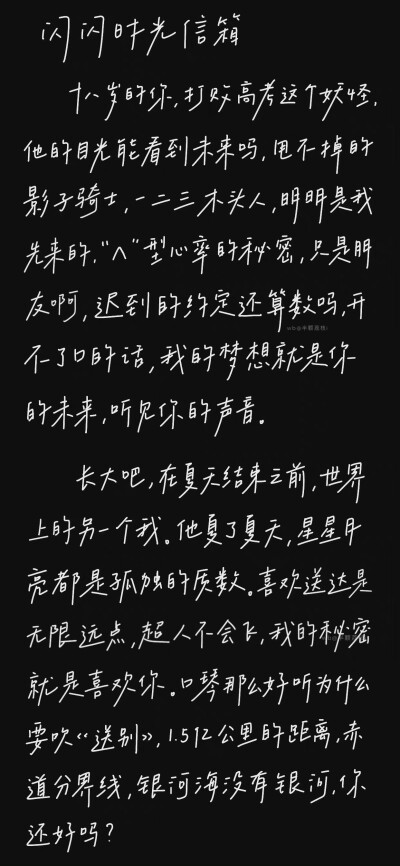 闪闪时光信箱
十八岁的你,打败高考这个妖怪,
他的目光能看到未来吗,甩不掉的
影子骑士,一二三木头人,明明是我
先来的,"∧"型心率的秘密,只是朋
友啊,迟到的约定还算数吗,开
不了口的话,我的梦想就是你
的未来,听见你的声音。
长大吧,在夏天结束之前,世界
上的另一个我。他夏了夏天,星星月
亮都是孤独的质数。喜欢送达是
无限远点,超人不会飞,我的秘密
就是喜欢你。口琴那么好听为什么
要吹《送别》,1.5亿公里的距离,赤
道分界线,银河海没有银河,你
还好吗?